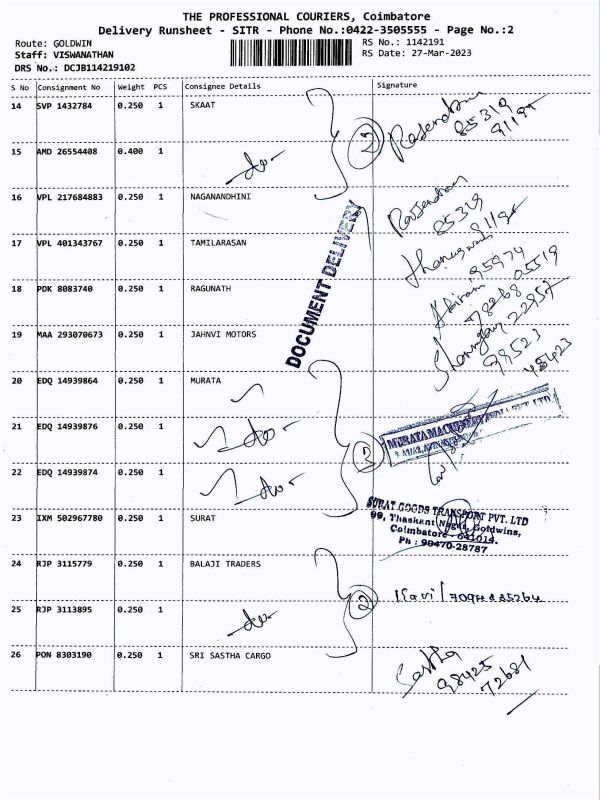 THE PROFESSIONAL COURIERS, Coimbatore
Delivery Runsheet - SITR - Phone No.:0422-3505555 - Page No.:2
Route: GOLDWIN RS No.: 1142191
Staff: VISWANATHAN RS Date: 27-Mar-2023
DRS No.: DCJB114219102
S No Consignment No Weight PCS Consignee Details Signature
14 SVP 1432784 0.250 1 SKAAT Rajendran
85319
9119
15 AMD 26554408 0.400 1 -do- 2
16 VPL 217684883 0.250 1 NAGANANDHINI Rajendran
85329
DOCUMENT DELIVERY
17 VPL 401343767 0.250 1 TAMILARASAN
95974
05519
18 PDK 8083740 0.250 1 RAGUNATH
22957
19 MAA 293070673 0.250 1 JAHNVI MOTORS
98523
45423
20 EDQ 14939864 0.250 1 MURATA
21 EDQ 14939876 0.250 1 -do- 3
22 EDQ 14939874 0.250 1 -do-
23 IXM 502967780 0.250 1 SURAT SURAT GOODS TRANSPORT PVT. LTD
99, Thaskant Nagar, Goldwins,
Coimbatore - 641014.
Ph : 90470-28787
24 RJP 3115779 0.250 1 BALAJI TRADERS 2 Ravi
25 RJP 3113895 0.250 1 -do-
26 PON 8303190 0.250 1 SRI SASTHA CARGO Sastha
98425
72681